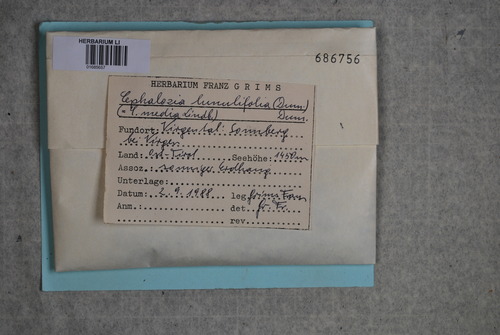 HERBARIUM LI
686756
HERBARIUM FRANZ GRIMS
Cephalozia lunulifolia (Dum.)
(= C. media Lindb.) Dum.
Fundort: Virgental: Sonnberg
bei Virgen
Land: Ost-Tirol Seehöhe: 1450m
Assoz.: Erdhang
Unterlage:
Datum: 2.9.1988 leg. Grims Franz
Anm.: det. Gr. Fr.
rev.